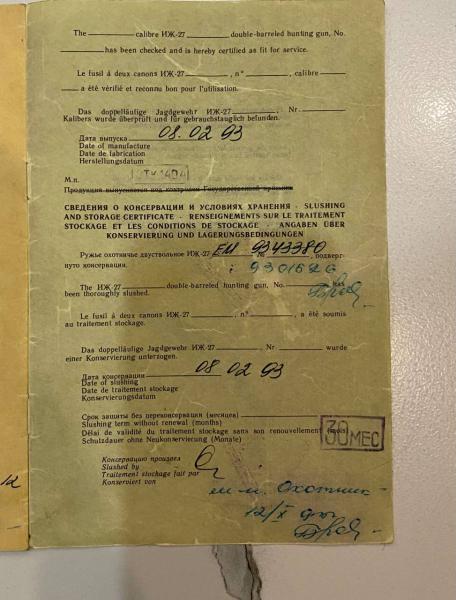 The ________ calibre ИЖ-27 ________ double-barreled hunting gun, No.
________ has been checked and is hereby certified as fit for service.
Le fusil á deux canons ИЖ-27 ________, n° ________, calibre ________
________ a été vérifié et reconnu bon pour l'utilisation.
Das doppelläufige Jagdgewehr ИЖ-27 ________, Nr ________
Kalibers wurde überprüft und für gebrauchstauglich befunden.
Дата выпуска 08.02 93
Date of manufacture
Date de fabrication
Herstellungsdatum
М.п.
Продукция выпускается под контролем Государственной приемки
СВЕДЕНИЯ О КОНСЕРВАЦИИ И УСЛОВИЯХ ХРАНЕНИЯ - SLUSHING
AND STORAGE CERTIFICATE - RENSEIGNEMENTS SUR LE TRAITEMENT
STOCKAGE ET LES CONDITIONS DE STOCKAGE - ANGABEN ÜBER
KONSERVIERUNG UND LAGERUNGSBEDINGUNGEN
Ружье охотничье двуствольное ИЖ-27 ЕМ № 9343380, подверг-
нуто консервации.
: 9301626
The ИЖ-27 ________ double-barreled hunting gun, No. ________ has
been thoroughly slushed.
Le fusil á deux canons ИЖ-27 ________, n° ________, a été soumis
au traitement stockage.
Das doppelläufige Jagdgewehr ИЖ-27 ________, Nr ________ wurde
einer Konservierung unterzogen.
Дата консервации 08 02 93
Date of slushing
Date de traitement stockage
Konservierungsdatum
Срок защиты без переконсервации (месяцев)
Slushing term without renewal (months)
Délai de validité du traitement stockage sans son renouvellement (mois)
Schulzdauer ohne Neukonservierung (Monate)
30 МЕС
Консервацию произвел
Slushed by
Traitement stockage fait par
Konserviert von
м-н. Охотник
12/X
12